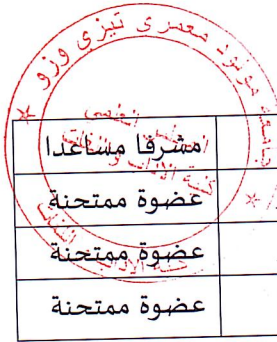 مولود معمري تيزي وزو
مشرفا مساعدا
عضوة ممتحنة
عضوة ممتحنة
عضوة ممتحنة